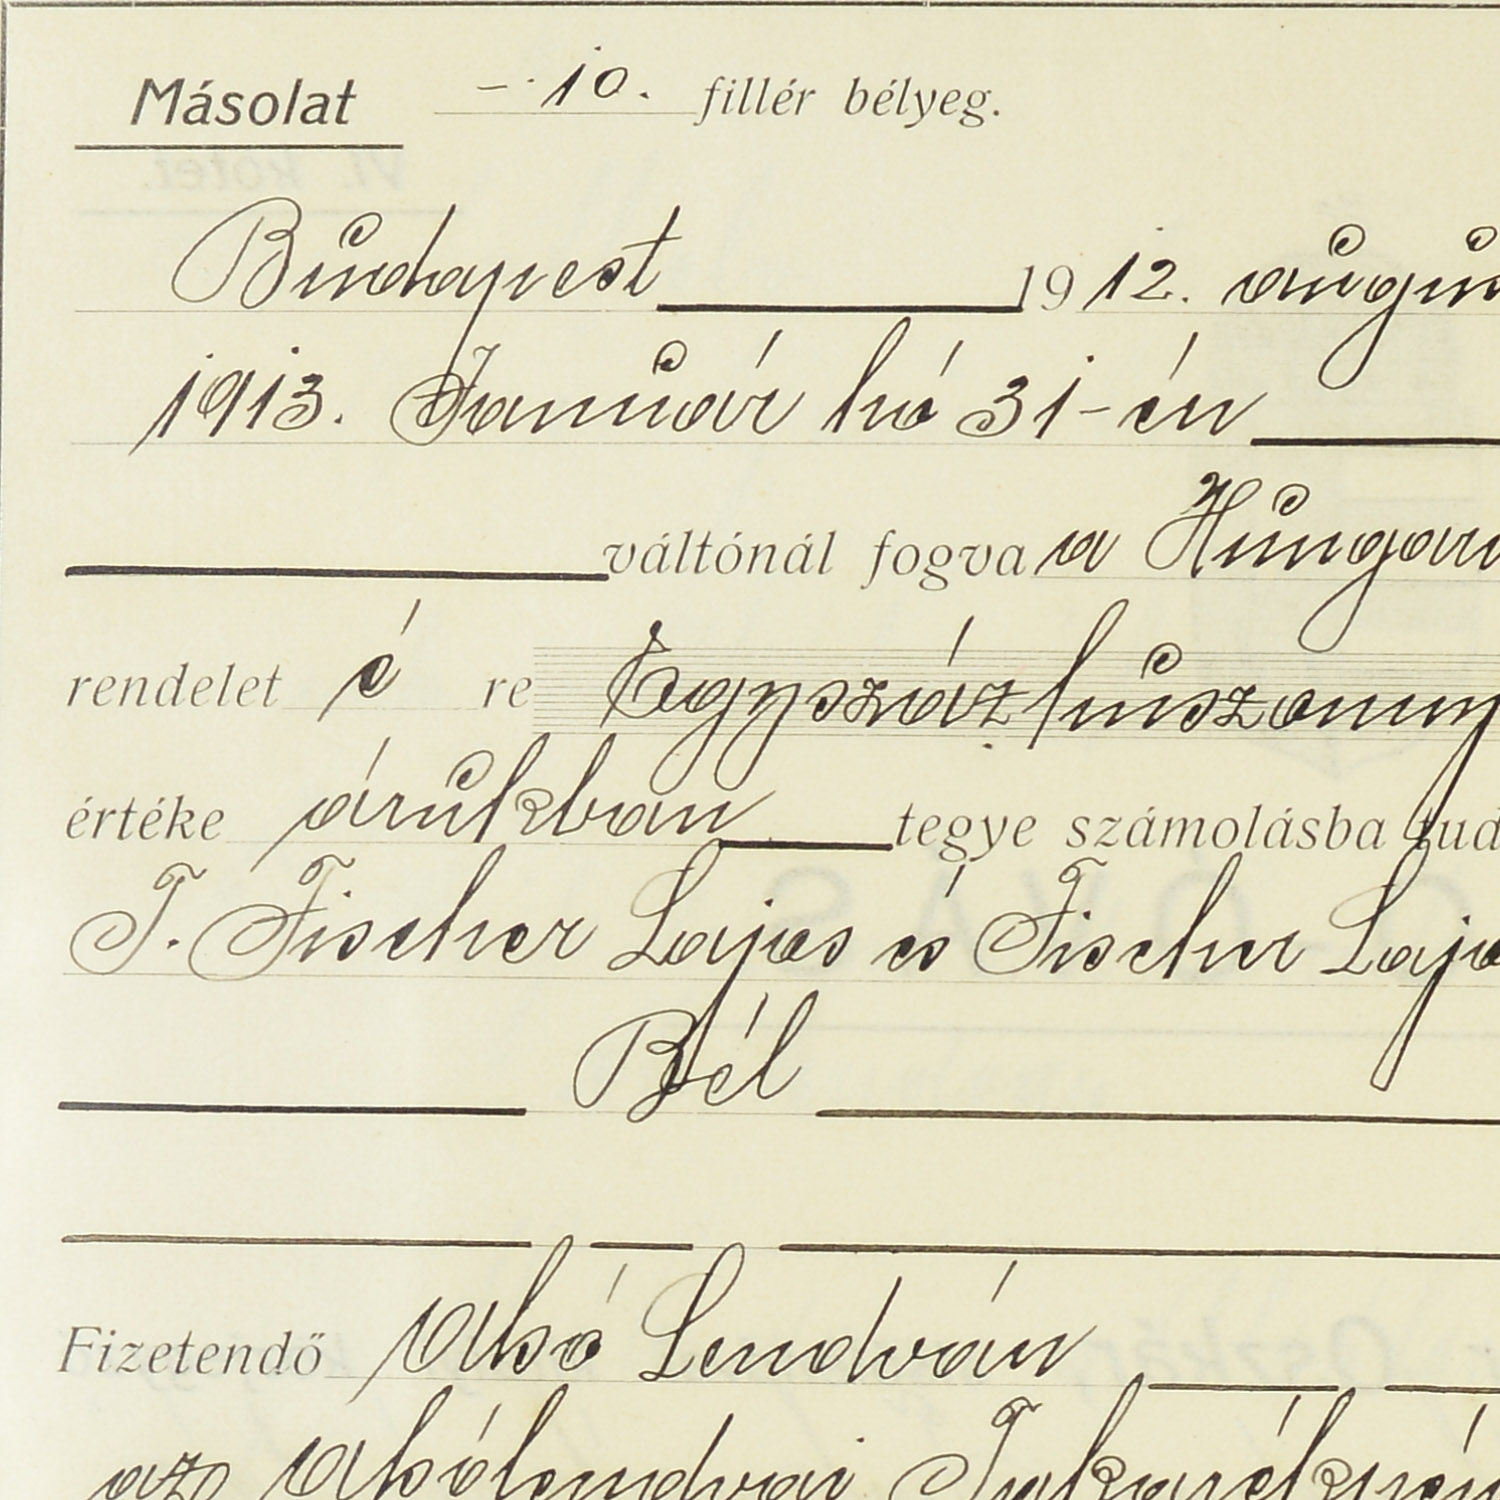 Másolat –·10. fillér bélyeg.
Budapest 1912. augus
1913. Január hó 31-én
váltónál fogva a Hungari
rendelet é re Egyszázhúszonny
értéke árukban tegye számolásba tud
T. Fischer Lajos és Fischer Lajo
Bél
Fizetendő Alsó Lendván
az Alsólendvai Takarékpén